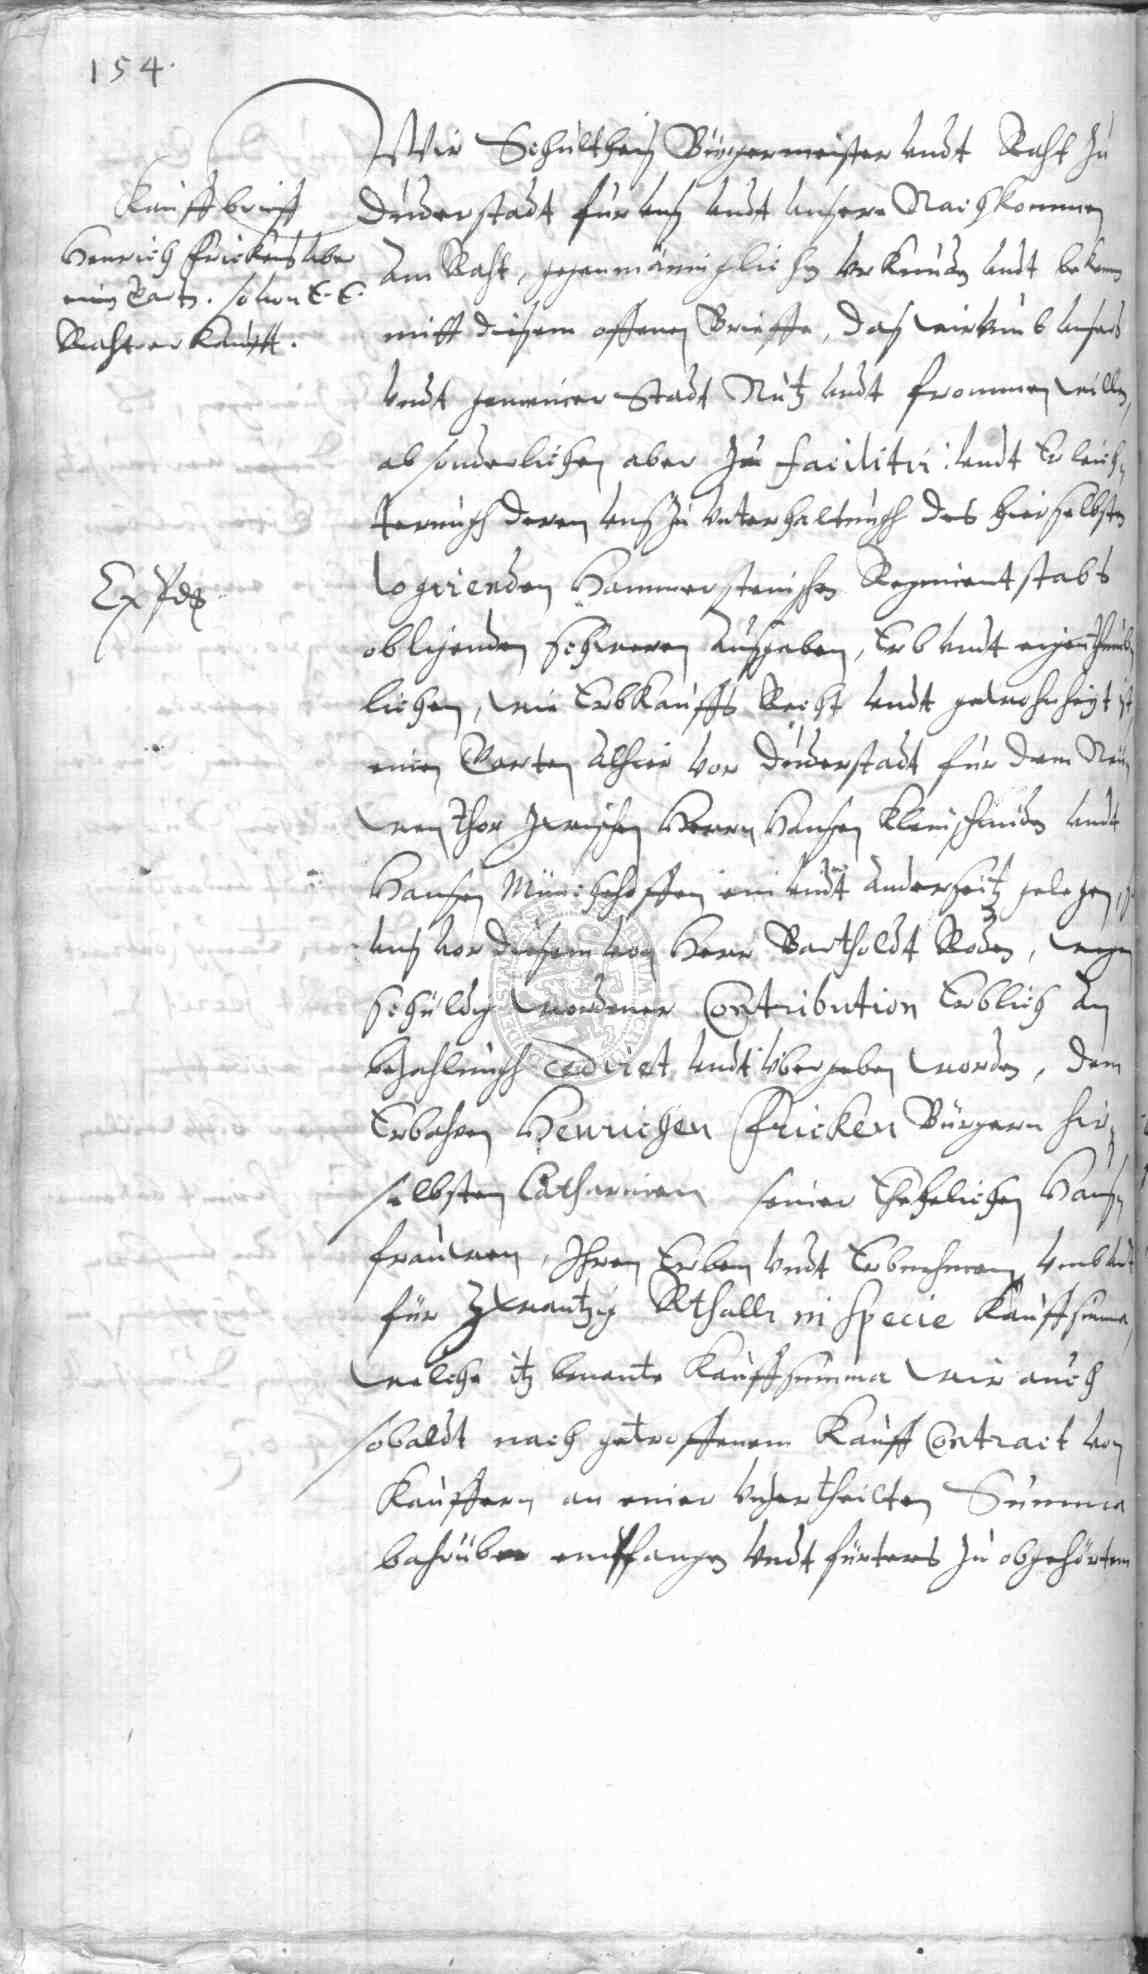 154.
Kauffbrieff
Henrich Frickens uber
einen Garten. so von E. E.
Raht erkaufft.
Wir Schultheis Bürgermeister undt Raht zu
Duderstadt für uns undt unsere Nachkommen
am Raht, gegenmänniglichen urkunden undt bekennen
mitt diesem offenen Brieffe, das wir umb unsers
undt gemeiner Stadt Nutz undt frommen willen,
absonderlichen aber zu facilitir: undt Erleich-
terungh deren uns zu unterhaltungh des hierselbsten
Expdt
logirenden Hammersteinischen Regimentstabs
obligenden schweren außgaben, Erb undt eigenthümb-
lichen, wie Erbkauffs Recht undt gewohnheyt ist,
einen Garten alhier vor Duderstadt für dem Neu-
wen thor zwischen Herrn Hansen Kleinschmidt undt
Hansen Münchehoffen ein undt anderseitz gelegen, so
uns vor diesem von Herr Bartholdt Roden, wegen
schuldig wordener Contribution Erblich an
bezahlungh cediret undt übergeben worden, dem
Erbahren Henrichen Fricken Bürgern hier-
selbsten Catharinen seiner Ehelichen Hauß-
frauwen, Ihren Erben undt Erbnehmen, umb undt
für Zwantzig Rthallr in specie Kauffsumma,
welche itz benante Kauffsumma wir auch
sobaldt nach getroffenem Kauff Contract von
Kauffern an einer unzertheilten Summa
bahrüber empfangen undt fürters zu obgehörtem